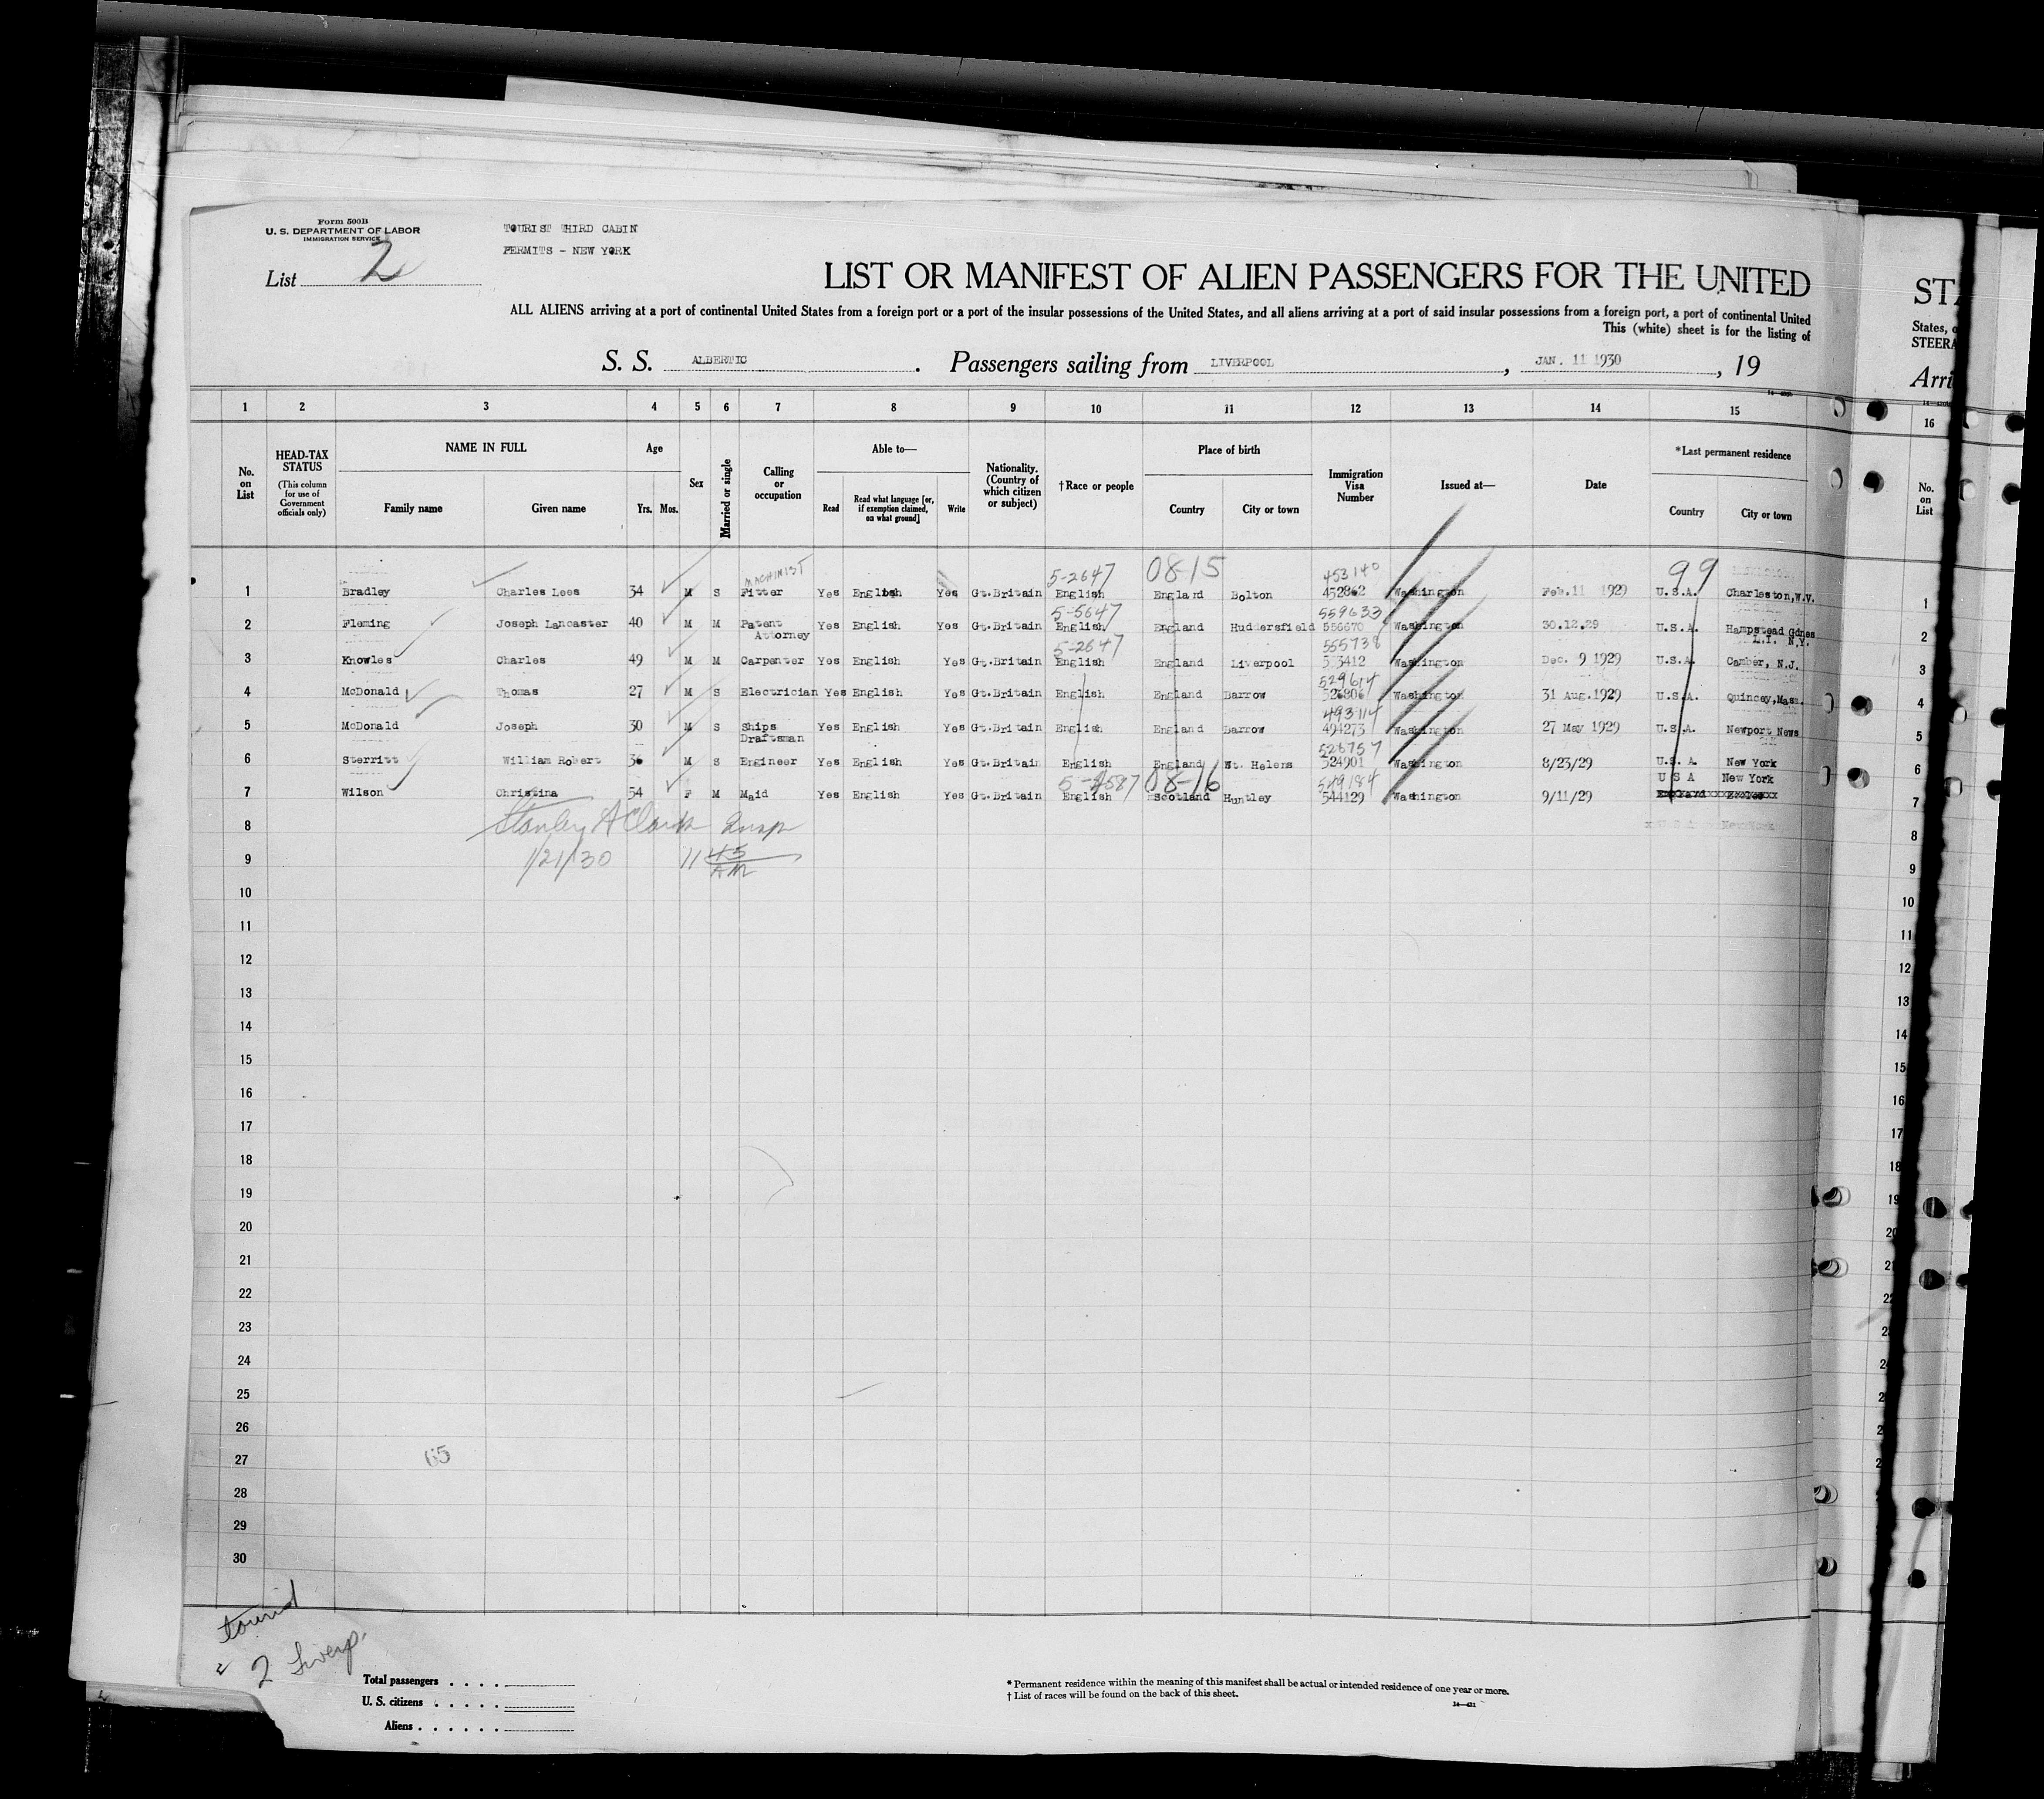 Form 500B
U. S. DEPARTMENT OF LABOR
IMMIGRATION SERVICE
List 2
TOURIST THIRD CABIN
PERMITS - NEW YORK
LIST OR MANIFEST OF ALIEN PASSENGERS FOR THE UNITED
ALL ALIENS arriving at a port of continental United States from a foreign port or a port of the insular possessions of the United States, and all aliens arriving at a port of said insular possessions from a foreign port, a port of continental United
This (white) sheet is for the listing of
S. S. ALBERTIC. Passengers sailing from LIVERPOOL, JAN. 11 1930, 19
STA
States, o
STEERA
Arri
1 2 3 4 5 6 7 8 9 10 11 12 13 14 15 16
No. on List
HEAD-TAX STATUS
(This column for use of Government officials only)
NAME IN FULL
Family name Given name
Age
Yrs. Mos.
Sex
Married or single
Calling or occupation
Able to—
Read
Read what language [or, if exemption claimed, on what ground]
Write
Nationality. (Country of which citizen or subject)
†Race or people
Place of birth
Country City or town
Immigration Visa Number
Issued at—
Date
*Last permanent residence
Country City or town
No. on List
MACHINIST 5-2647 08-15 453140 99
1 Bradley Charles Lees 34 M S Fitter Yes English Yes Gt.Britain English England Bolton 452862 Washington Feb.11 1929 U.S.A. Charleston,W.V. 1
5-5647 559633
2 Fleming Joseph Lancaster 40 M M Patent Attorney Yes English Yes Gt.Britain English England Huddersfield 556670 Washington 30.12.29 U.S.A. Hampstead Gdnes L.I. N.Y. 2
5-2647 555738
3 Knowles Charles 49 M M Carpenter Yes English Yes Gt.Britain English England Liverpool Washington Dec. 9 1929 U.S.A. Camber, N.J. 3
529614
4 McDonald Thomas 27 M S Electrician Yes English Yes Gt.Britain English England Barrow 526806 Washington 31 Aug.1929 U.S.A. Quincey,Mass. 4
493114
5 McDonald Joseph 30 M S Ships Draftsman Yes English Yes Gt.Britain English England Barrow 494273 Washington 27 May 1929 U.S.A. Newport News 5
528757
6 Sterritt William Robert 36 M S Engineer Yes English Yes Gt.Britain English England St. Helens 524901 Washington 8/23/29 U.S. A. New York 6
08-16 549184 U S A New York
7 Wilson Christina 54 F M Maid Yes English Yes Gt.Britain English Scotland Huntley 544129 Washington 9/11/29 7
8 Stanley A Clark Insp 8
9 1/21/30 11 45 AM 9
10 10
11 11
12 12
13 13
14 14
15 15
16 16
17 17
18 18
19 19
20 20
21 21
22 22
23
24
25
26
27 65
28
29
30
tourist
2 Liverp.
Total passengers . . . .
U. S. citizens . . . . .
Aliens . . . . . .
* Permanent residence within the meaning of this manifest shall be actual or intended residence of one year or more.
† List of races will be found on the back of this sheet.
14—421